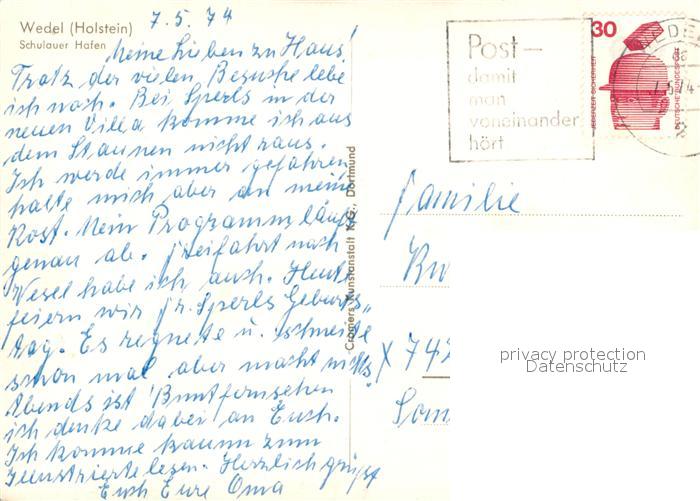 Wedel (Holstein)
Schulauer Hafen
7.5.74
Meine Lieben zu Haus!
Trotz der vielen Besuche lebe
ich noch. Bei Sperls in der
neuen Villa komme ich aus
dem Staunen nicht raus.
Ich werde immer gefahren
halte mich aber an meine
Kost. Mein Programm läuft
genau ab. Freifahrt nach
Wesel habe ich auch. Heute
feiern wir Fr. Sperls Geburts„
tag. Es regnete u. schneite
schon mal aber macht nichts„
Abends ist Buntfernsehen
ich denke dabei an Euch.
Ich komme kaum zum
Illustrierte lesen. Herzlich grüßt
Euch Eure Oma
Cramers Kunstanstalt K.G., Dortmund
Post –
damit
man
voneinander
hört
30
JEDERZEIT SICHERHEIT
DEUTSCHE BUNDESPOST
WEDEL
Familie
X 74
privacy protection
Datenschutz